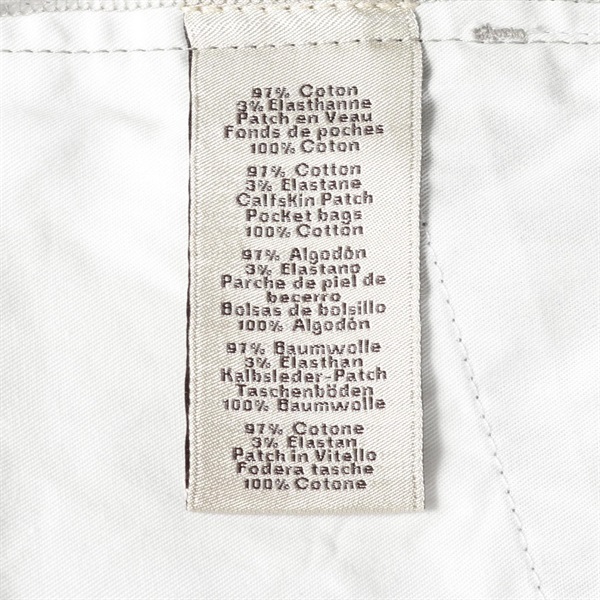 97% Coton
3% Elasthanne
Patch en Veau
Fonds de poches
100% Coton
97% Cotton
3% Elastane
Calfskin Patch
Pocket bags
100% Cotton
97% Algodón
3% Elastano
Parche de piel de
becerro
Bolsas de bolsillo
100% Algodón
97% Baumwolle
3% Elasthan
Kalbsleder-Patch
Taschenböden
100% Baumwolle
97% Cotone
3% Elastan
Patch in Vitello
Fodera tasche
100% Cotone